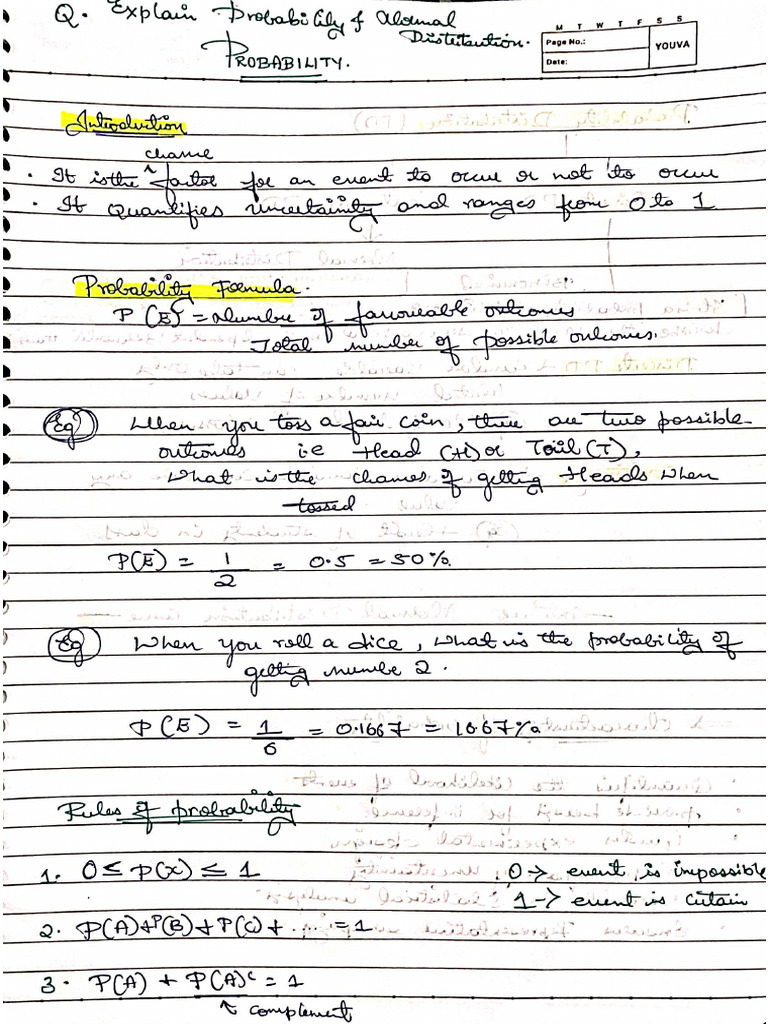 Q. Explain Probability & Normal Distribution.
M T W T F S S
Page No.:
YOUVA
Date:
PROBABILITY.
Introduction
chance
• It is the ^ factor for an event to occur or not to occur
• It quantifies uncertainity and ranges from 0 to 1
Probability Formula.
P(E) = Number of favourable outcomes
Total number of possible outcomes.
Eg) When you toss a fair coin, there are two possible
outcomes i.e Head (H) or Tail (T),
what is the chances of getting Heads when
tossed
P(E) = 1/2 = 0.5 = 50%
Eg When you roll a dice, what is the probability of
getting number 2.
P(E) = 1/6 = 0.1667 = 16.67%
Rules of probability
1. 0 ≤ P(x) ≤ 1 0 → event is impossible
1 → event is certain
2. P(A)+P(B)+P(C)+ .... = 1
3. P(A) + P(A)ᶜ = 1
↖ complement